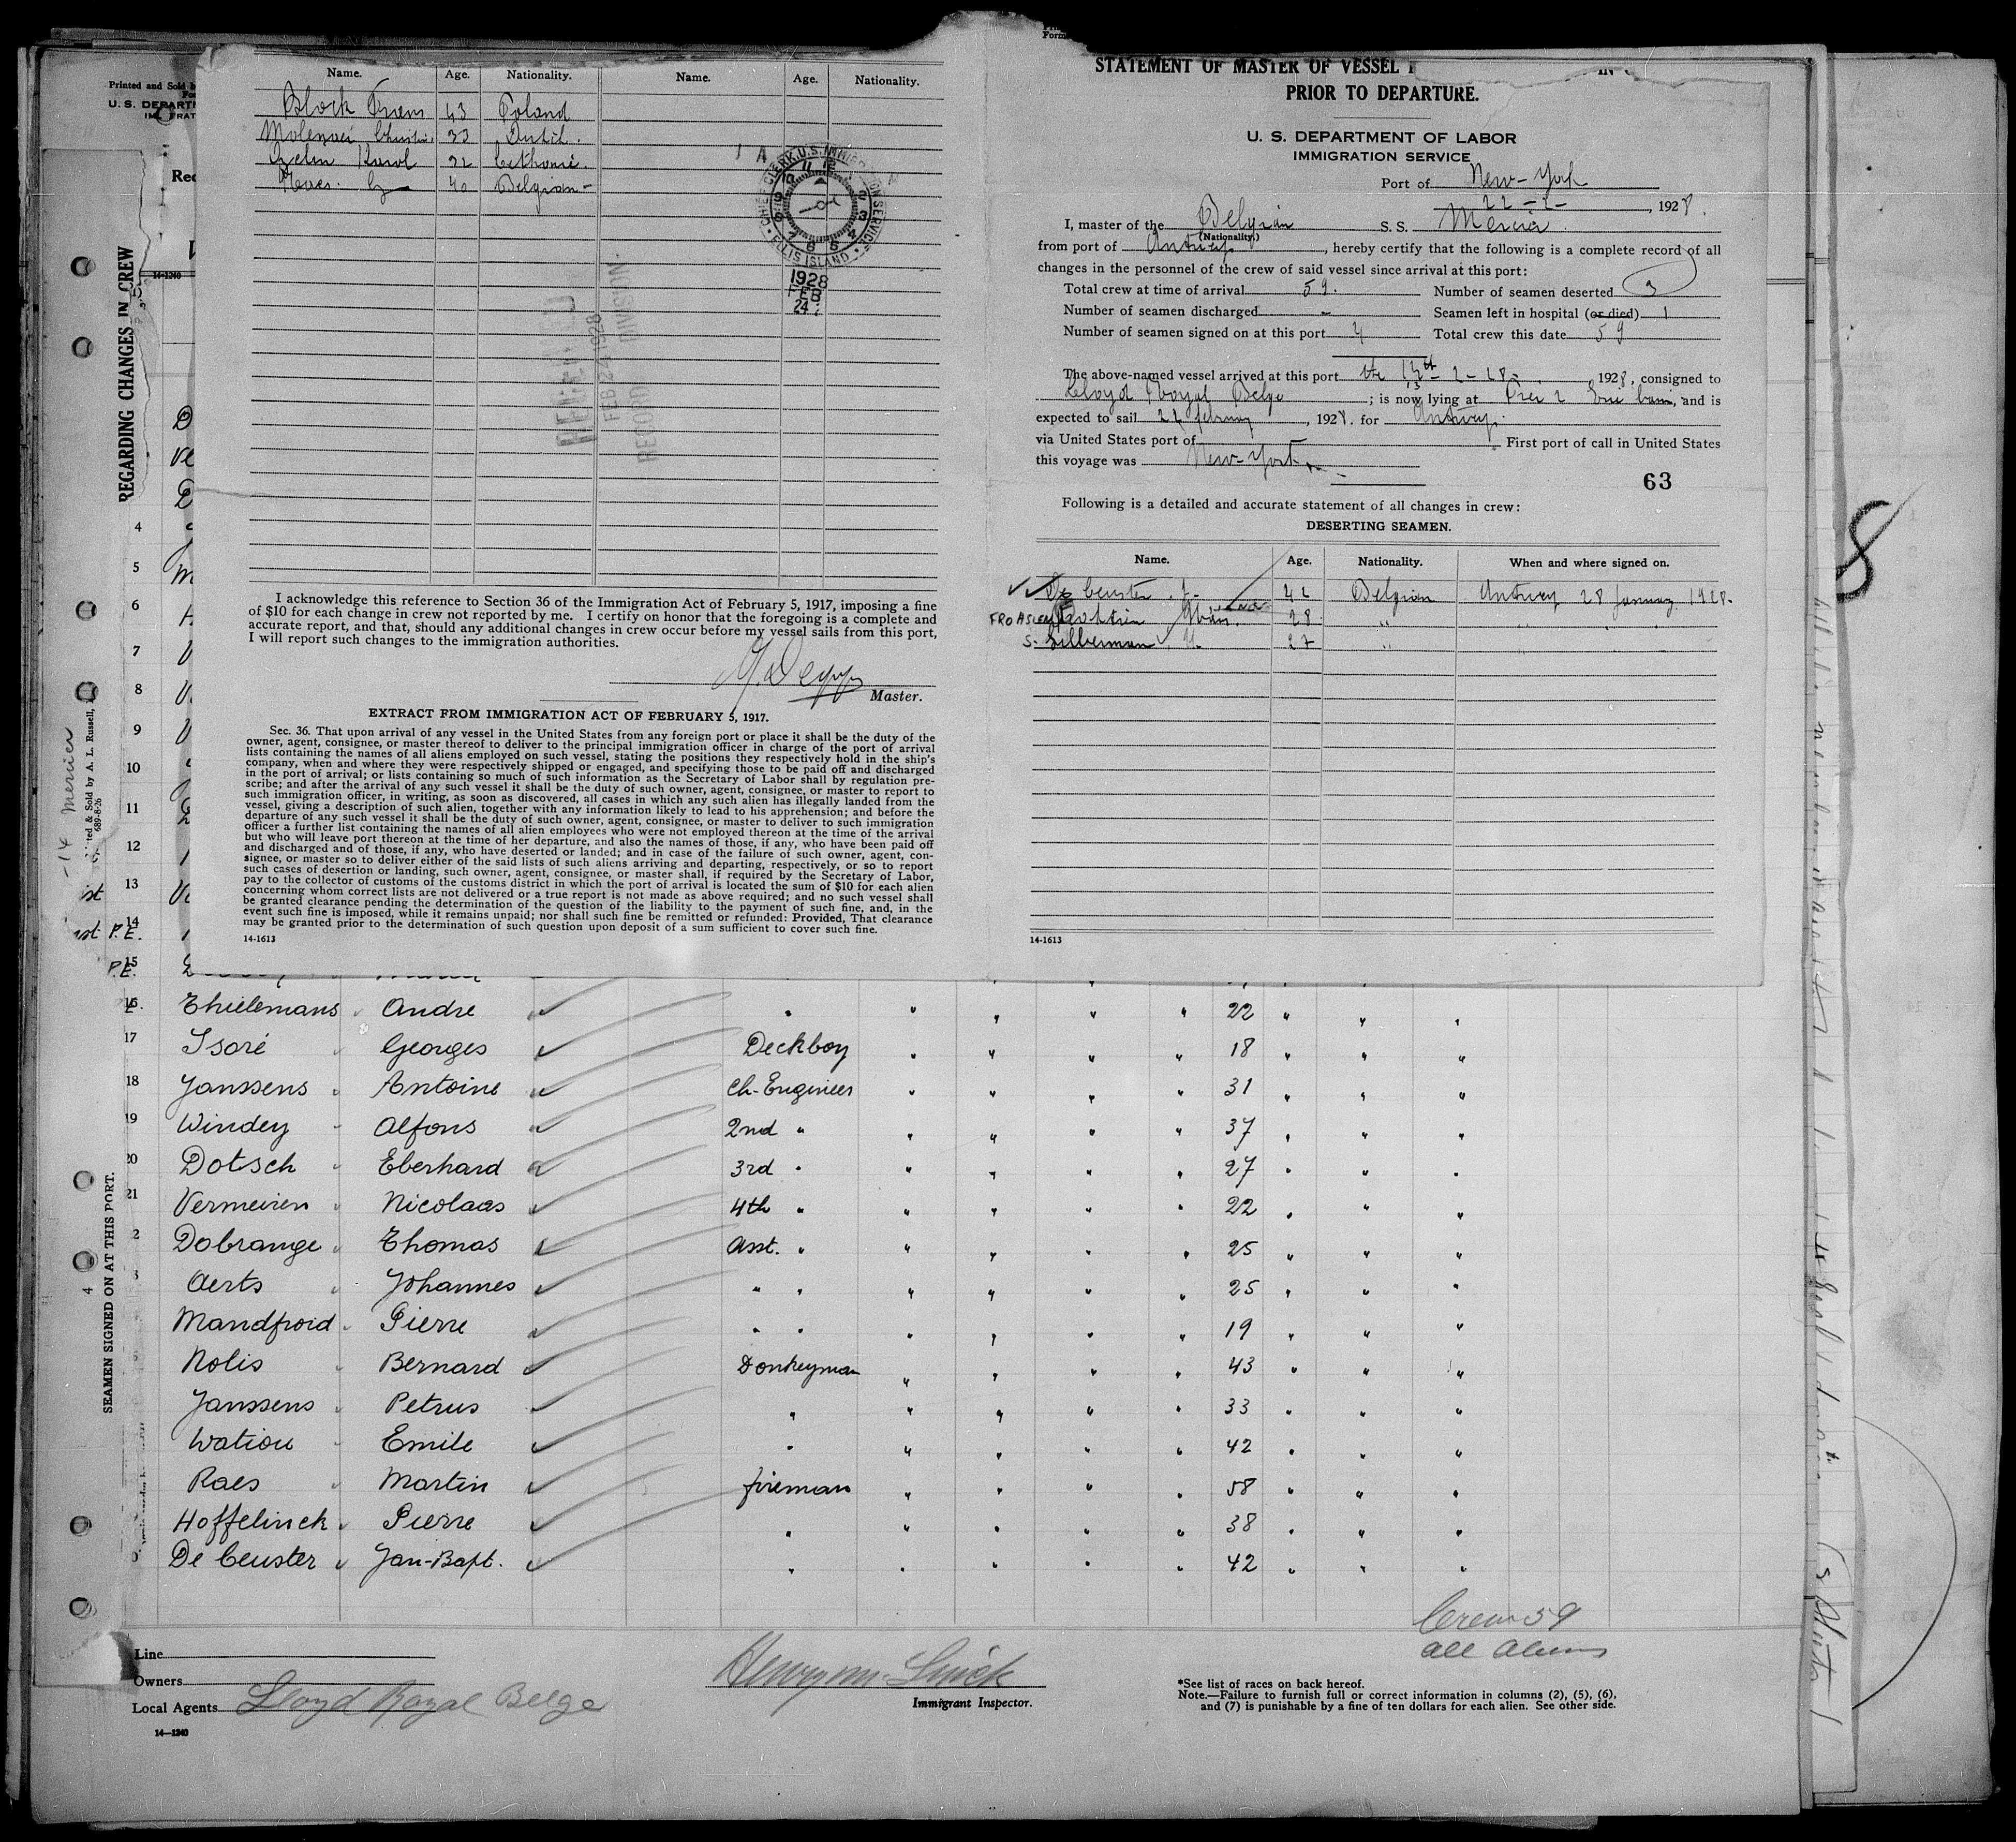 Name. Age. Nationality. Name. Age. Nationality.
Block Frans 43 Poland
33
Karol 22
40 Belgian
CHIEF CLERK U.S. IMMIGRATION SERVICE ELLIS ISLAND
1928
FEB
24
FEB 24 1928
RECORD DIVISION
I acknowledge this reference to Section 36 of the Immigration Act of February 5, 1917, imposing a fine
of $10 for each change in crew not reported by me. I certify on honor that the foregoing is a complete and
accurate report, and that, should any additional changes in crew occur before my vessel sails from this port,
I will report such changes to the immigration authorities.
Master.
EXTRACT FROM IMMIGRATION ACT OF FEBRUARY 5, 1917.
Sec. 36. That upon arrival of any vessel in the United States from any foreign port or place it shall be the duty of the
owner, agent, consignee, or master thereof to deliver to the principal immigration officer in charge of the port of arrival
lists containing the names of all aliens employed on such vessel, stating the positions they respectively hold in the ship's
company, when and where they were respectively shipped or engaged, and specifying those to be paid off and discharged
in the port of arrival; or lists containing so much of such information as the Secretary of Labor shall by regulation pre-
scribe; and after the arrival of any such vessel it shall be the duty of such owner, agent, consignee, or master to report to
such immigration officer, in writing, as soon as discovered, all cases in which any such alien has illegally landed from the
vessel, giving a description of such alien, together with any information likely to lead to his apprehension; and before the
departure of any such vessel it shall be the duty of such owner, agent, consignee, or master to deliver to such immigration
officer a further list containing the names of all alien employees who were not employed thereon at the time of the arrival
but who will leave port thereon at the time of her departure, and also the names of those, if any, who have been paid off
and discharged and of those, if any, who have deserted or landed; and in case of the failure of such owner, agent, con-
signee, or master so to deliver either of the said lists of such aliens arriving and departing, respectively, or so to report
such cases of desertion or landing, such owner, agent, consignee, or master shall, if required by the Secretary of Labor,
pay to the collector of customs of the customs district in which the port of arrival is located the sum of $10 for each alien
concerning whom correct lists are not delivered or a true report is not made as above required; and no such vessel shall
be granted clearance pending the determination of the question of the liability to the payment of such fine, and, in the
event such fine is imposed, while it remains unpaid; nor shall such fine be remitted or refunded: Provided, That clearance
may be granted prior to the determination of such question upon deposit of a sum sufficient to cover such fine.
14-1613
STATEMENT OF MASTER OF VESSEL
PRIOR TO DEPARTURE.
U. S. DEPARTMENT OF LABOR
IMMIGRATION SERVICE
Port of New-York
22-2- , 1928.
I, master of the Belgian S. S. Mercier
(Nationality.)
from port of Antwerp, hereby certify that the following is a complete record of all
changes in the personnel of the crew of said vessel since arrival at this port:
Total crew at time of arrival 59. Number of seamen deserted 3
Number of seamen discharged - Seamen left in hospital (or died) 1
Number of seamen signed on at this port 4 Total crew this date 59
The above-named vessel arrived at this port the 1928, consigned to
Lloyd Royal Belge; is now lying at Pier 2 , and is
expected to sail february, 1928. for Antwerp.
via United States port of First port of call in United States
this voyage was New-York
63
Following is a detailed and accurate statement of all changes in crew:
DESERTING SEAMEN.
Name. Age. Nationality. When and where signed on.
De Ceuster J. 42 Belgian Antwerp 28 January 1928.
28 " "
Silberman 27 " "
14-1613
REGARDING CHANGES IN CREW
SEAMEN SIGNED ON AT THIS PORT.
Printed and Sold by
U. S. DEPARTM
14-1240
Printed & Sold by A. L. Russell,
689-8-26
Mercier
4
5
6
7
8
9
10
11
12
13
14 P.E.
15 P.E.
16 Thielemans Andre " " " " " 22 " " "
17 Isoré Georges Deckboy " " " " 18 " " "
18 Janssens Antoine Ch-Engineer " " " " 31 " " "
19 Windey Alfons 2nd " " " " " 37 " " "
20 Dotsch Eberhard 3rd " " " " " 27 " " "
21 Vermeiren Nicolaas 4th " " " " " 22 " " "
2 Dobrange Thomas Asst. " " " " " 25 " " "
Aerts Johannes " " " " " " 25 " " "
Mandfroid Pierre " " " " " " 19 " " "
Nolis Bernard Donkeyman " " " " 43 " " "
Janssens Petrus " " " " " 33 " " "
Watiou Emile " " " " " 42 " " "
Raes Martin fireman " " " " 58 " " "
Hoffelinck Pierre " " " " " 38 " " "
De Ceuster Jan-Bapt. " " " " " 42 " " "
Crew 59
all Aliens
Line
Owners
Local Agents Lloyd Royal Belge
Immigrant Inspector.
*See list of races on back hereof.
Note.—Failure to furnish full or correct information in columns (2), (5), (6),
and (7) is punishable by a fine of ten dollars for each alien. See other side.
14—1240
8